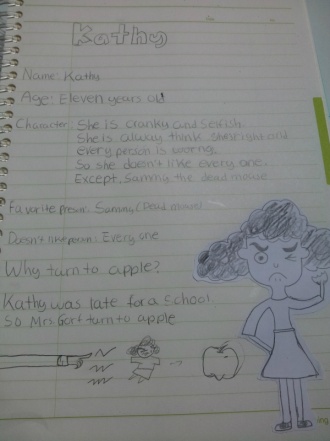 Kathy
Name: Kathy
Age: Eleven years old
Character: She is cranky and selfish.
She is always think she's right and
every person is wrong.
So she doesn't like every one.
Except, Sammy the dead mouse
Favorite person: Sammy (Dead mouse)
Doesn't like person: Every one
Why turn to apple?
Kathy was late for a School.
So Mrs. Gorf turn to apple